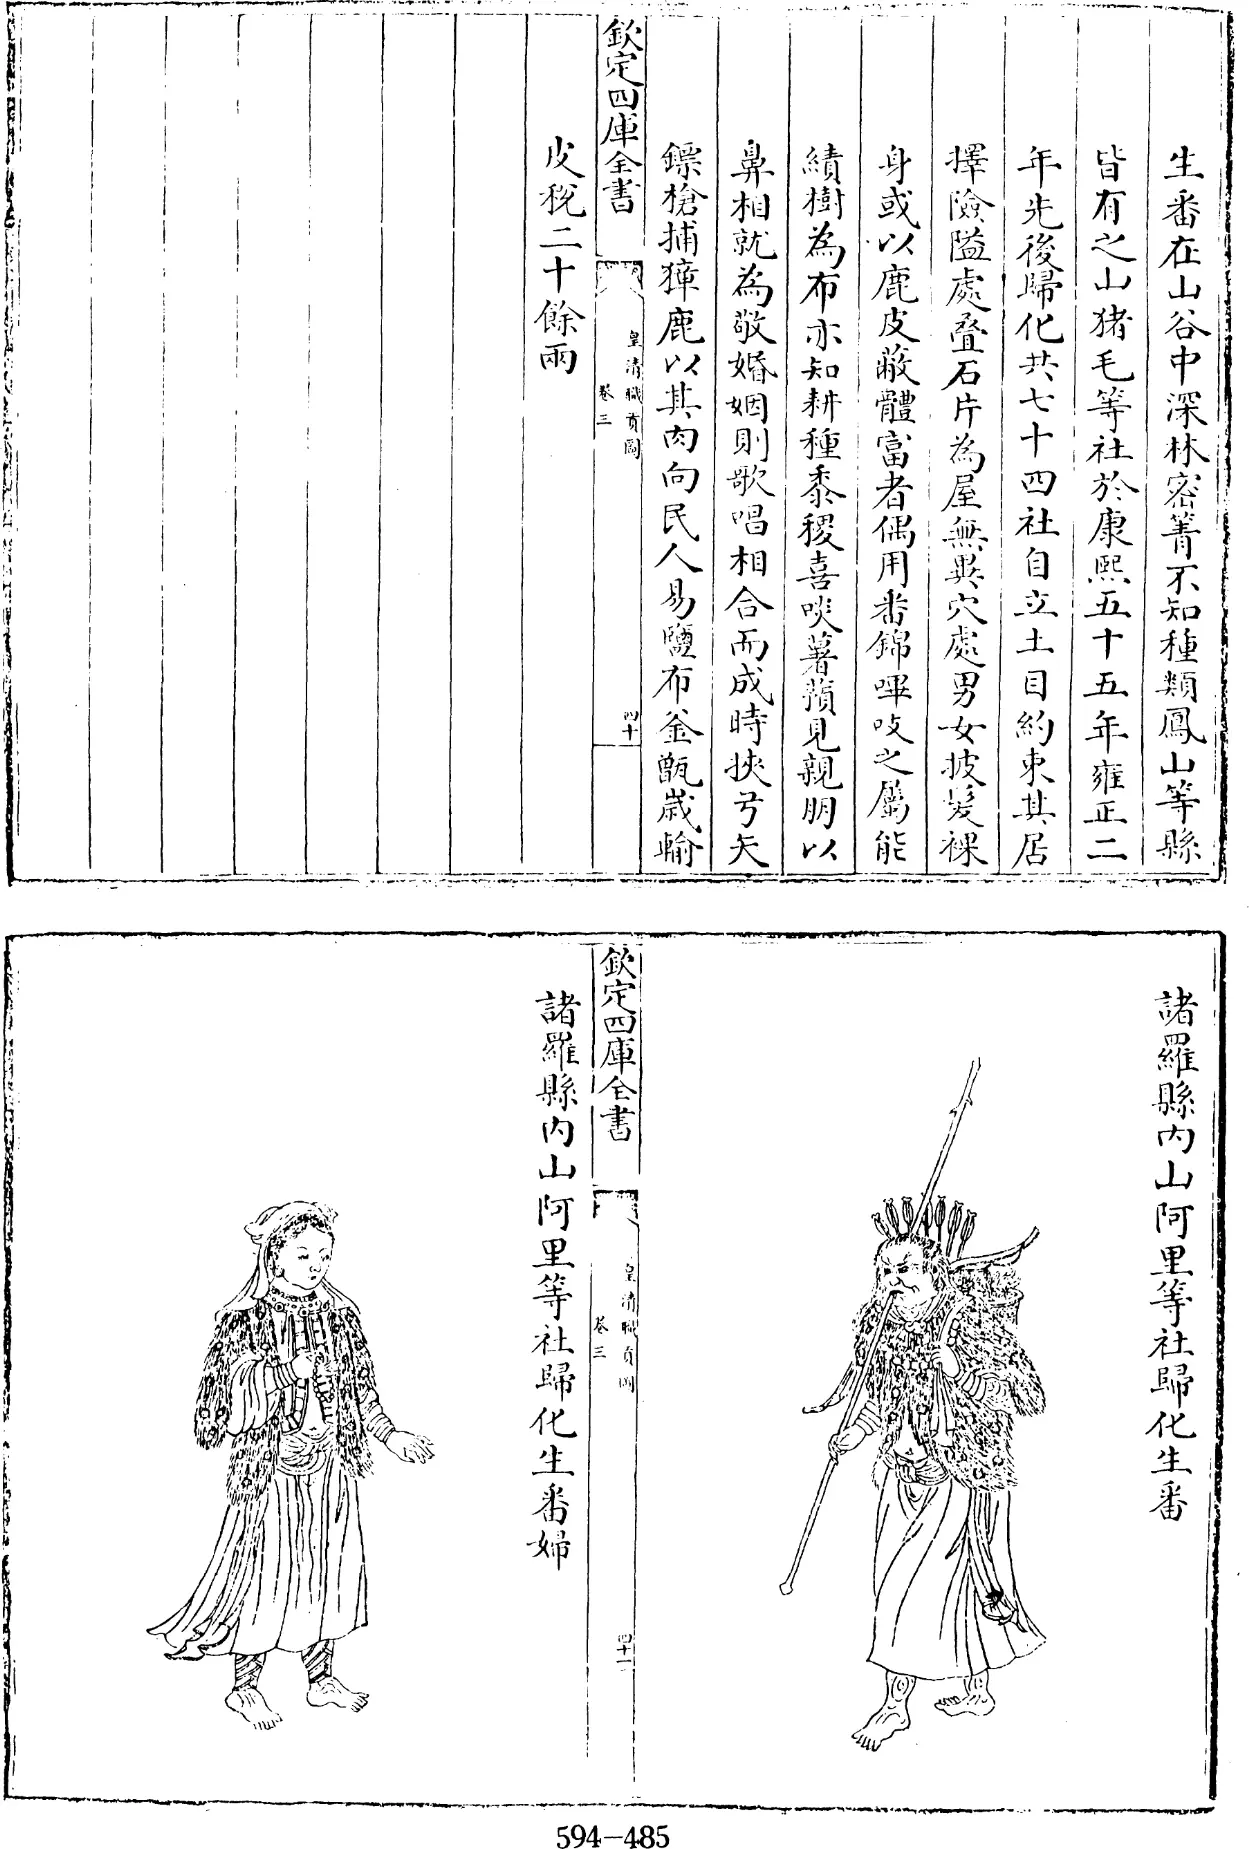 生番在山谷中深林密箐不知種類鳳山等縣
皆有之山猪毛等社於康熙五十五年雍正二
年先後歸化共七十四社自立土目約束其居
擇險隘處疊石片為屋無異穴處男女披髮裸
身或以鹿皮蔽體富者偶用番錦嗶吱之屬能
績樹為布亦知耕種黍稷喜啖薯蕷見親朋以
鼻相就為敬婚姻則歌唱相合而成時挾弓矢
鏢槍捕獐鹿以其肉向民人易鹽布釜甑歲輸
欽定四庫全書
皇清職貢圖
卷三
四十
皮稅二十餘兩
諸羅縣内山阿里等社歸化生番
欽定四庫全書
皇清職貢圖
卷三
四十一
諸羅縣内山阿里等社歸化生番婦
594-485